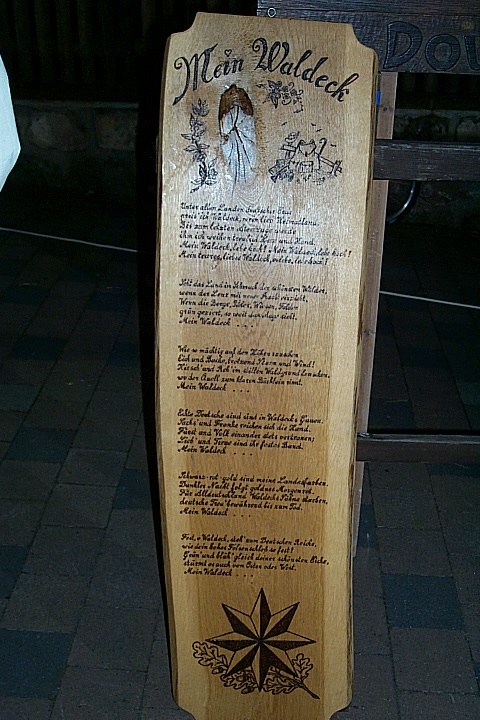 Mein Waldeck
Dou
Unter allen Landen deutscher Erde
preis' ich Waldeck, mein lieb Heimatland.
Bis zum letzten Atemzuge werde
ihm ich weihen treulich Herz und Hand.
Mein Waldeck, lebe hoch! Mein Waldeck, lebe hoch!
Mein teures, liebes Waldeck, es lebe hoch!
Seht das Land im Schmuck der schönsten Wälder,
wenn der Lenz mit neuer Pracht einzieht,
Wenn die Berge, Täler, Wiesen, Felder
grün geziert, so weit das Auge sieht.
Mein Waldeck . . .
Wie so mächtig auf den Höhen rauschen
Eich' und Buche, trotzend Sturm und Wind!
Hirsch' und Reh' im stillen Waldgrund lauschen,
wo der Quell zum klaren Bächlein rinnt.
Mein Waldeck . . .
Echte Deutsche sind sind in Waldeck's Gauen,
Sachs' und Franke reichen sich die Hand.
Fürst und Volk einander stets vertrauen;
Lieb' und Treue sind ihr festes Band.
Mein Waldeck . . .
Schwarz-rot-gold sind meine Landesfarben,
Dunkler Nacht folgt goldnes Morgenrot.
Für Alldeutschland Waldecks Söhne starben,
deutsche Treu' bewährend bis zum Tod.
Mein Waldeck . . .
Fest, o Waldeck, steh' zum Deutschen Reiche,
wie dein hohes Felsenschloß so fest!
Grün' und blüh' gleich deiner schönsten Eiche,
stürmt es auch von Osten oder West.
Mein Waldeck . . .